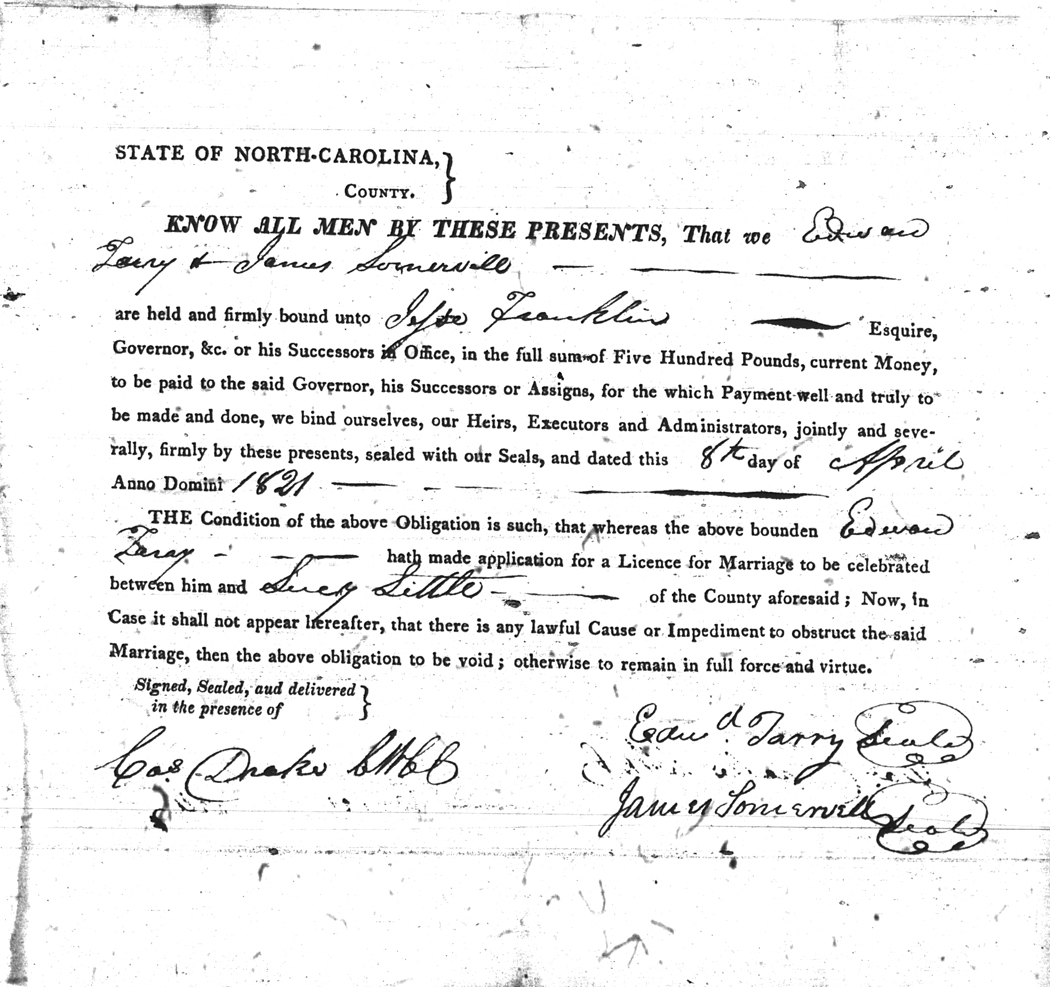 STATE OF NORTH-CAROLINA, }
COUNTY.
KNOW ALL MEN BY THESE PRESENTS, That we Edwan
Tarry & James Somervill
are held and firmly bound unto Jesse Franklin Esquire,
Governor, &c. or his Successors in Office, in the full sum of Five Hundred Pounds, current Money,
to be paid to the said Governor, his Successors or Assigns, for the which Payment well and truly to
be made and done, we bind ourselves, our Heirs, Executors and Administrators, jointly and seve-
rally, firmly by these presents, sealed with our Seals, and dated this 8th day of April
Anno Domini 1821
THE Condition of the above Obligation is such, that whereas the above bounden Edwan
Taray hath made application for a Licence for Marriage to be celebrated
between him and Lucy Little of the County aforesaid; Now, in
Case it shall not appear hereafter, that there is any lawful Cause or Impediment to obstruct the said
Marriage, then the above obligation to be void; otherwise to remain in full force and virtue.
Signed, Sealed, aud delivered }
in the presence of
Edwd Tarry Seal
Cas Drake CWCC
James Somervell Seal